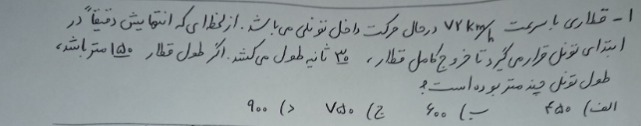 ۱- قطاری با سرعت ۷۲ km/h در حال حرکت داخل تونلی می باشد. از لحظه ای که انتهایش دقیقاً در
ابتدای تونل قرار می گیرد تا خروج کامل قطار، ۳۰ ثانیه طول می کشد. اگر طول قطار ۱۵۰ متر باشد،
طول تونل چند متر بوده است؟
الف) ۴۵۰ ب) ۶۰۰ ج) ۷۵۰ د) ۹۰۰